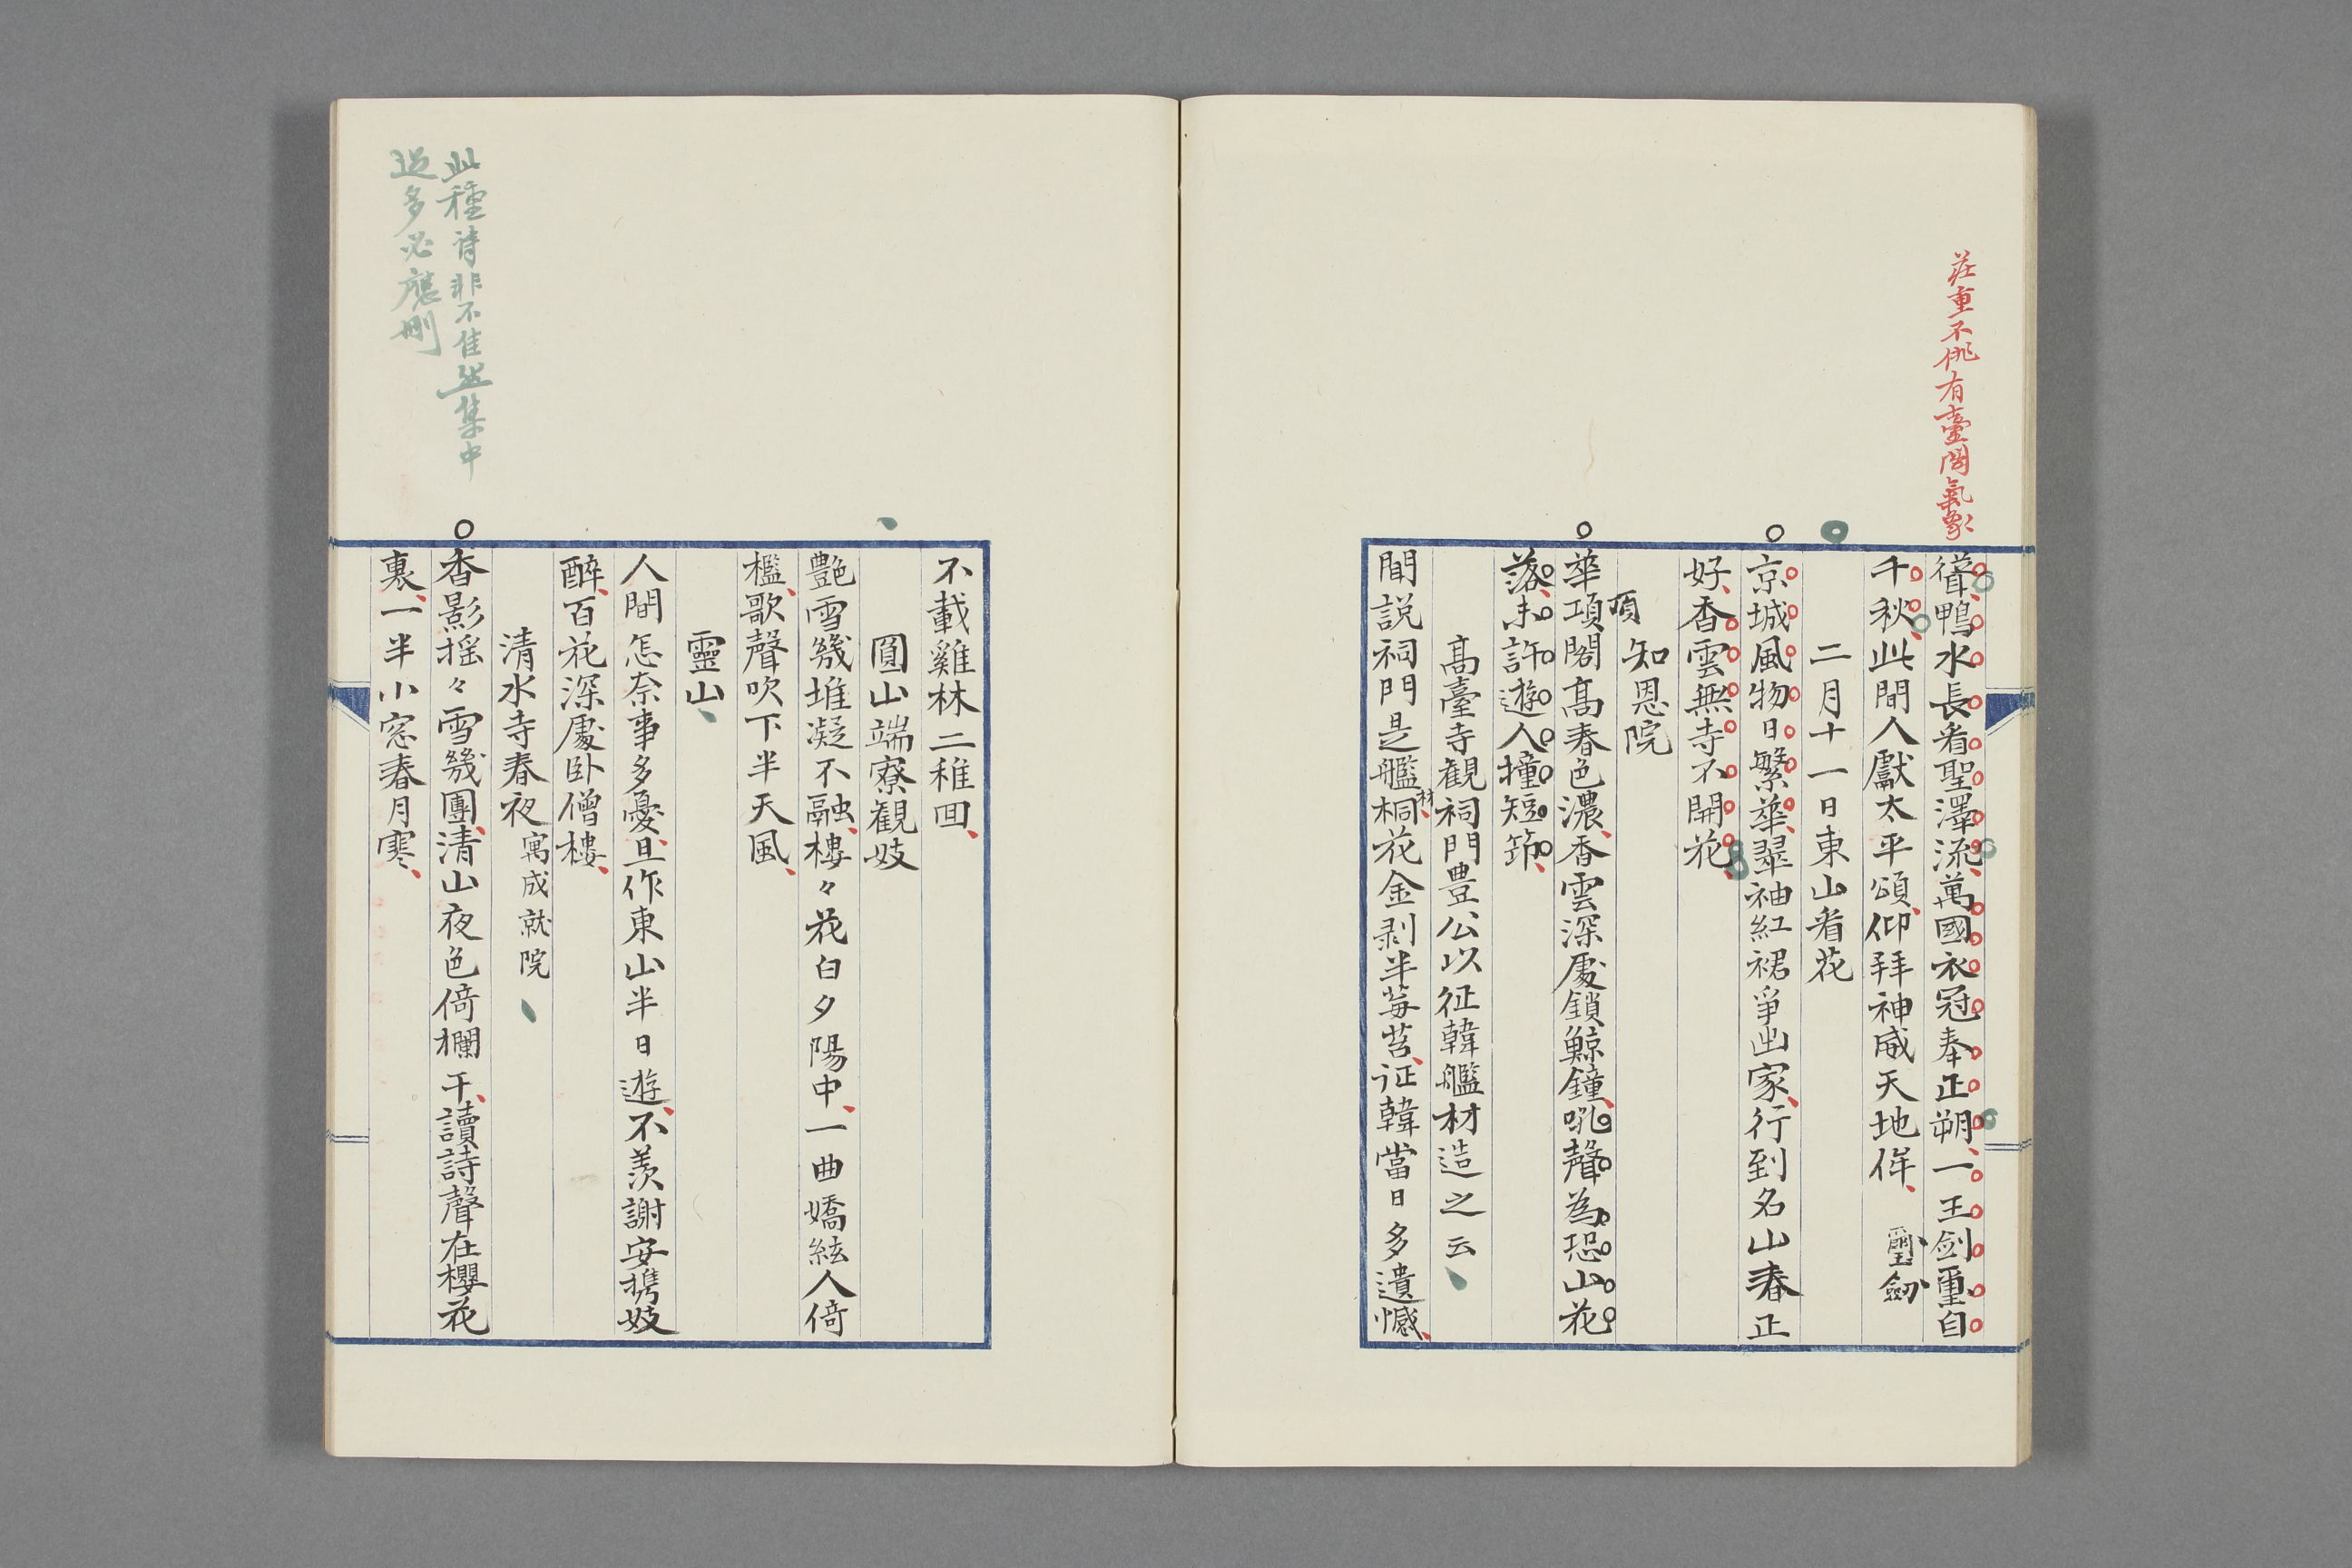 莊重不佻有臺閣氣象
聳鴨水長看聖澤流萬國衣冠奉正朔一王剑璽自
千秋此間人獻太平頌仰拜神威天地侔
璽劔
二月十一日東山看花
京城風物日繁華翠袖紅裙爭出家行到名山春正
好香雲無寺不開花
知恩院
華項閣髙春色濃香雲深處鎖鯨鐘吼聲為恐山花
頂
落未許遊人撞短笻
髙臺寺観祠門豊公以征韓艦材造之云
聞説祠門是艦桐花金剥半莓苔征韓當日多遺憾
材
不載雞林二稚囬
圓山端寮観妓
艶雪幾堆凝不融樓々花白夕陽中一曲嬌絃人倚
檻歌聲吹下半天風
靈山
人間怎奈事多憂且作東山半日遊不羨謝安携妓
醉百花深處卧僧樓
清水寺春夜寓成就院
香影揺々雪幾團清山夜色倚欄干讀詩聲在櫻花
裏一半小窓春月寒
此種詩非不佳然集中
過多必應刪